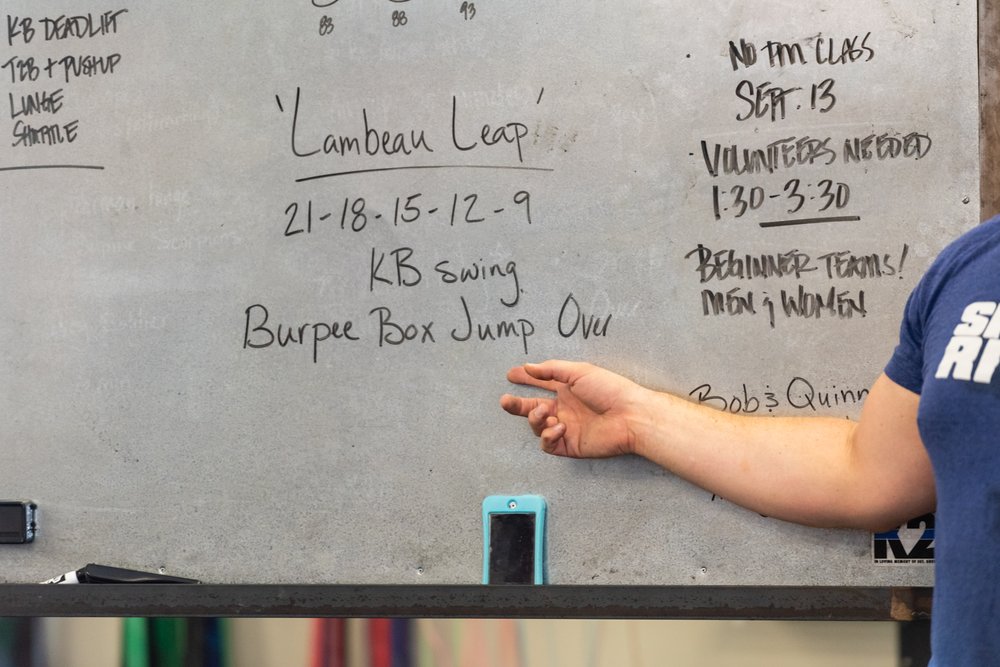 KB DEADLIFT
T2B + PUSHUP
LUNGE
SHUTTLE
83 88 93
'Lambeau Leap'
21-18-15-12-9
KB swing
Burpee Box Jump Over
NO PM CLASS
SEPT. 13
VOLUNTEERS NEEDED
1:30-3:30
BEGINNER TEAMS!
MEN & WOMEN
Bob & Quinn
IN LOVING MEMORY OF